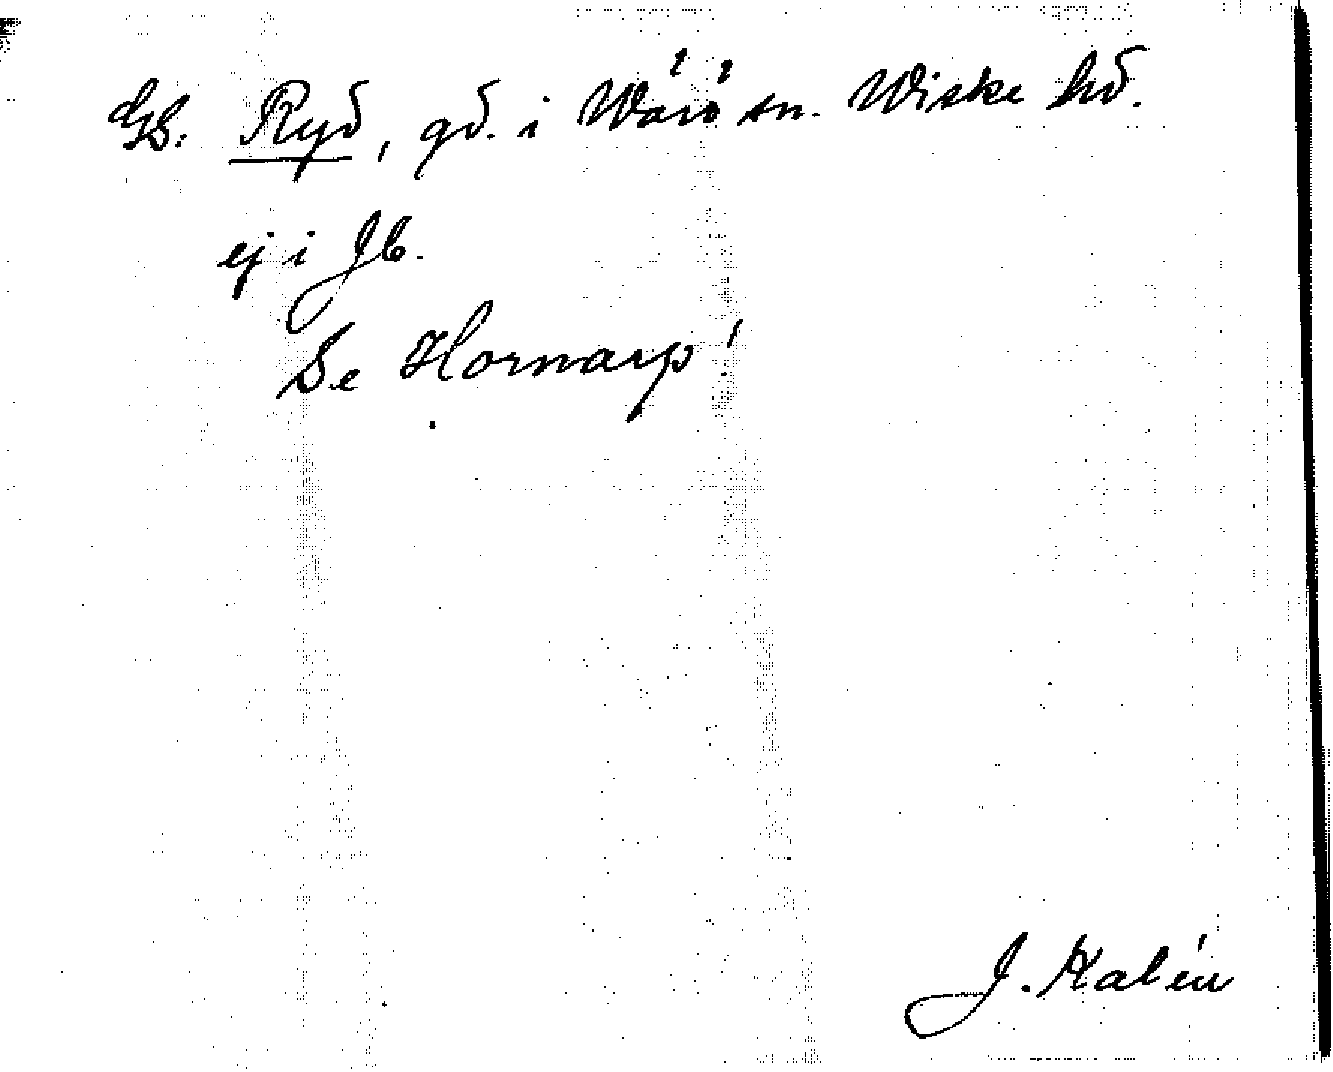 GB: Ryd, gd. i Wärö sn. Wiske hd.
ej i Jb.
Se Hornarp!
J. Kalén